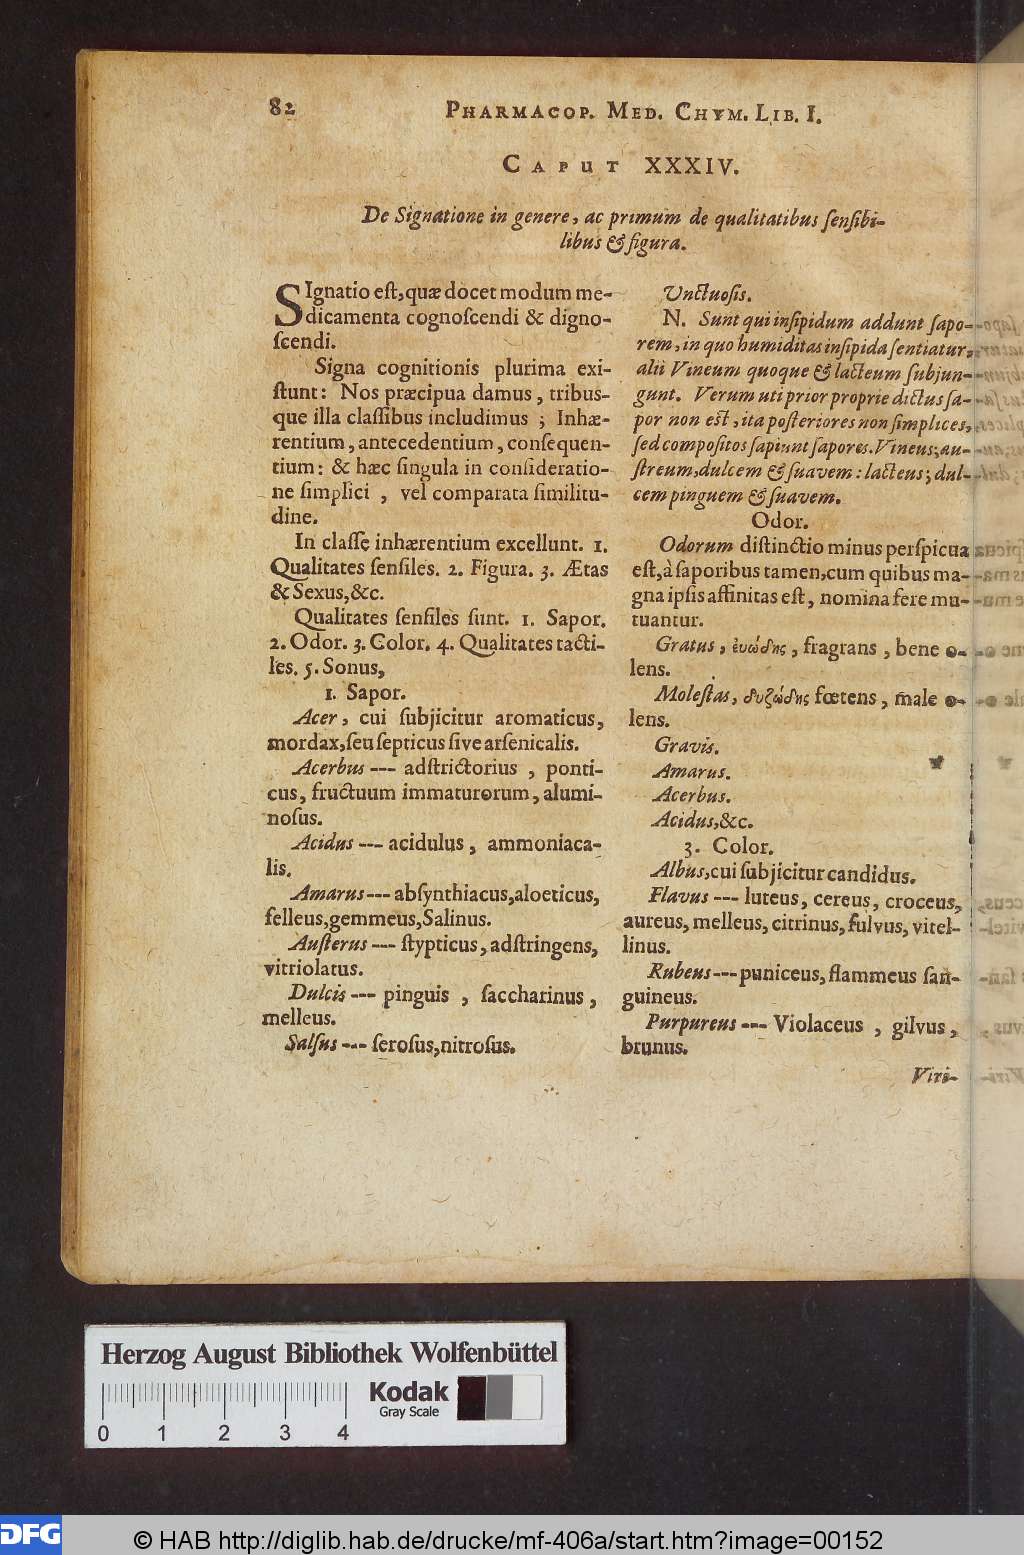 82
PHARMACOP. MED. CHYM. LIB. I.
CAPUT XXXIV.
De Signatione in genere, ac primum de qualitatibus ſenſibi-
libus & figura.
SIgnatio eſt, quæ docet modum me-
dicamenta cognoſcendi & digno-
ſcendi.
Signa cognitionis plurima exi-
ſtunt: Nos præcipua damus, tribus-
que illa claſſibus includimus; Inhæ-
rentium, antecedentium, conſequen-
tium: & hæc ſingula in conſideratio-
ne ſimplici, vel comparata ſimilitu-
dine.
In claſſe inhærentium excellunt. 1.
Qualitates ſenſiles. 2. Figura. 3. Ætas
& Sexus, &c.
Qualitates ſenſiles ſunt. 1. Sapor.
2. Odor. 3. Color. 4. Qualitates tacti-
les. 5. Sonus,
1. Sapor.
Acer, cui ſubjicitur aromaticus,
mordax, ſeu ſepticus ſive arſenicalis.
Acerbus --- adſtrictorius, ponti-
cus, fructuum immaturorum, alumi-
noſus.
Acidus --- acidulus, ammoniaca-
lis.
Amarus --- abſynthiacus, aloeticus,
felleus, gemmeus, Salinus.
Auſterus --- ſtypticus, adſtringens,
vitriolatus.
Dulcis --- pinguis, ſaccharinus,
melleus.
Salſus --- ſeroſus, nitroſus.
Unctuoſis.
N. Sunt qui inſipidum addunt ſapo-
rem, in quo humiditas inſipida ſentiatur,
alii Vineum quoque & lacteum ſubjun-
gunt. Verum uti prior proprie dictus ſa-
por non eſt, ita poſteriores non ſimplices,
ſed compoſitos ſapiunt ſapores. Vineus; au-
ſtreum, dulcem & ſuavem: lacteus; dul-
cem pinguem & ſuavem.
Odor.
Odorum diſtinctio minus perſpicua
eſt, à ſaporibus tamen, cum quibus ma-
gna ipſis affinitas eſt, nomina fere mu-
tuantur.
Gratus, ἐυώδης, fragrans, bene o-
lens.
Moleſtas, δυζώδης fœtens, male o-
lens.
Gravis.
Amarus.
Acerbus.
Acidus, &c.
3. Color.
Albus, cui ſubjicitur candidus.
Flavus --- luteus, cereus, croceus,
aureus, melleus, citrinus, fulvus, vitel-
linus.
Rubeus --- puniceus, flammeus ſan-
guineus.
Purpureus --- Violaceus, gilvus,
brunus.
Viri-
Herzog August Bibliothek Wolfenbüttel
Kodak
Gray Scale
0 1 2 3 4
DFG
© HAB http://diglib.hab.de/drucke/mf-406a/start.htm?image=00152